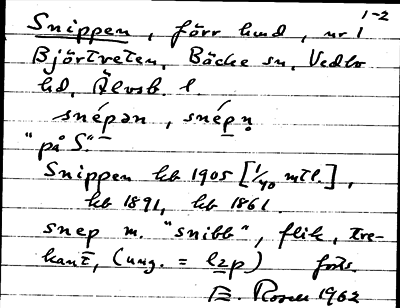 1-2
Snippen, förr lund, nr 1
Björtveten, Bäcke sn, Vedbo
hd, Älvsb. l.
snépən, snépn̥
"på S."
Snippen kb 1905 [1/40 mtl.],
kb 1891, kb 1861.
snep m. "snibb", flik, tre-
kant, (ung. = l2p) forts.
E. Rosen 1962